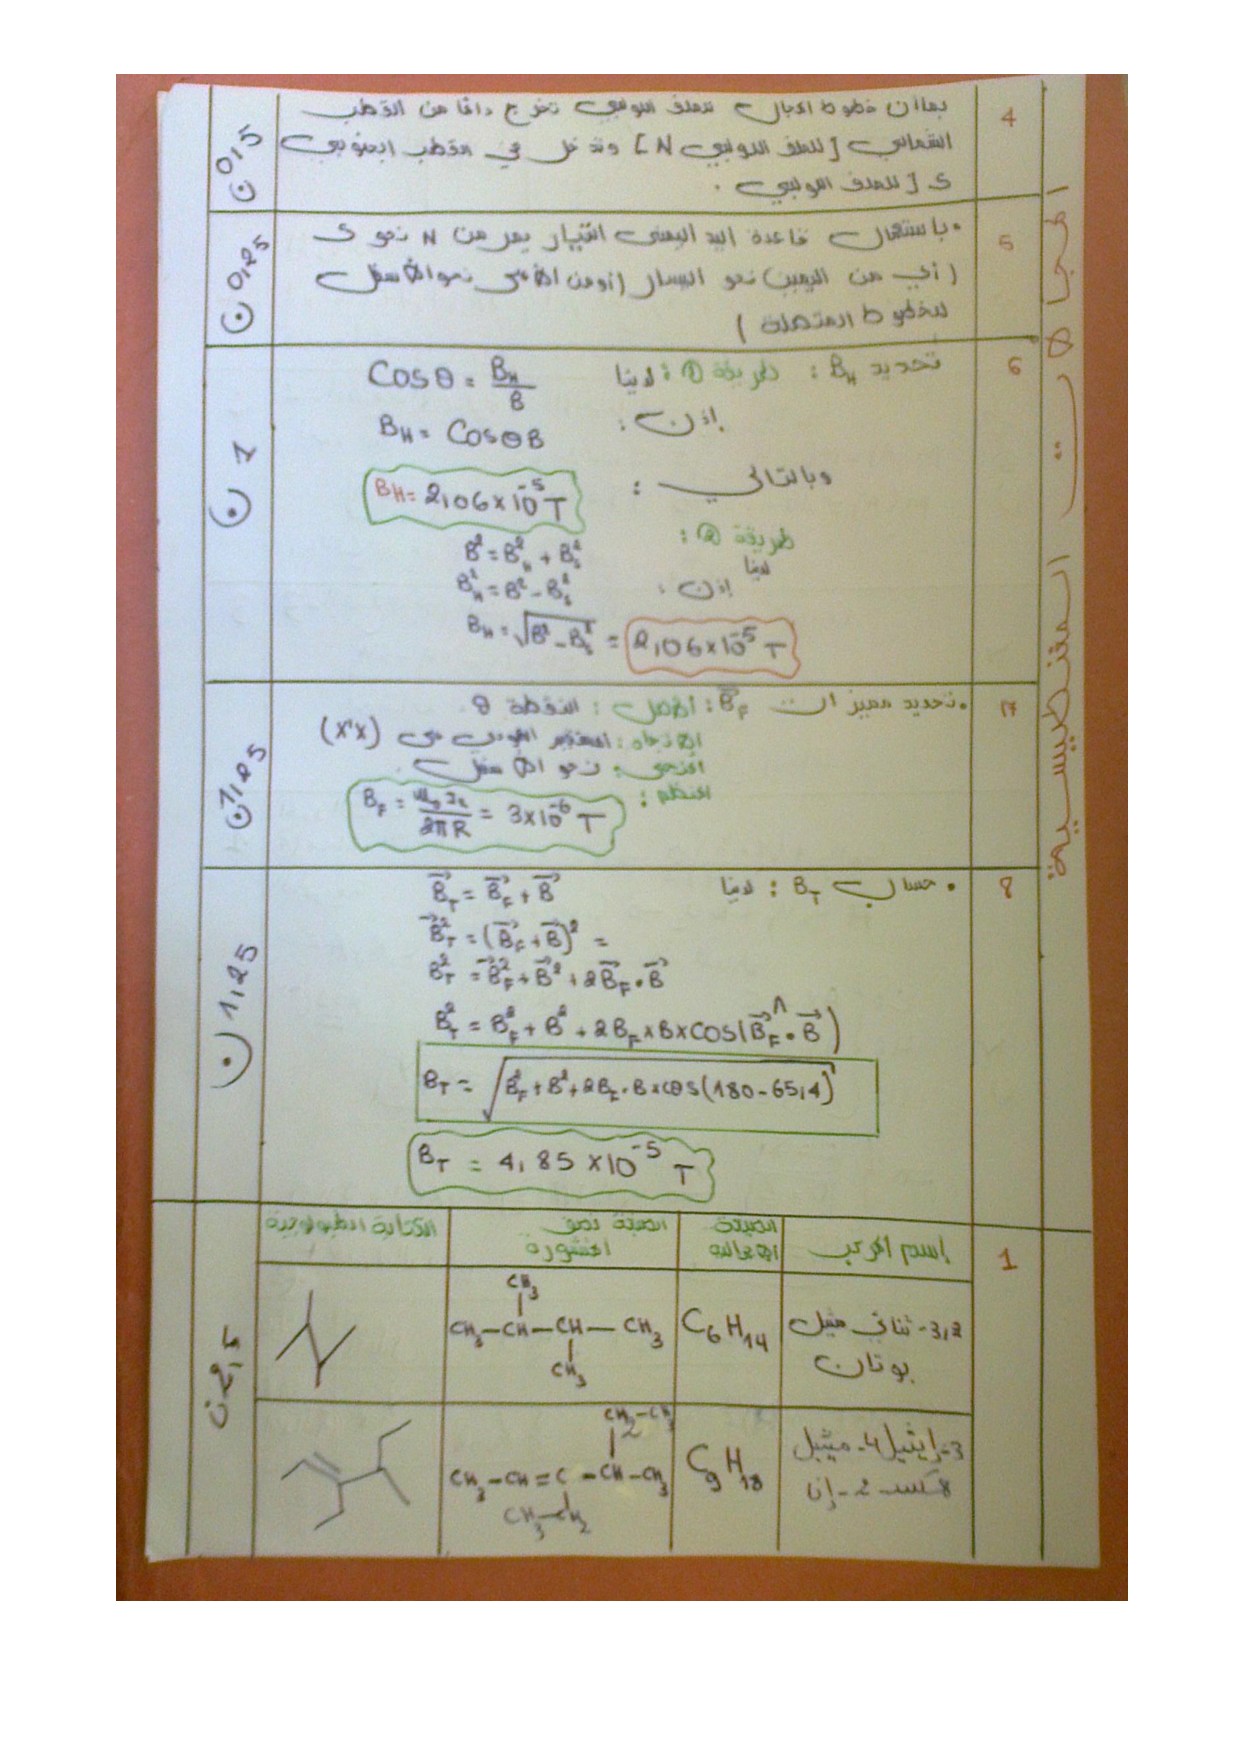 4
بما أن خطوط المجال للملف اللولبي تخرج دائما من القطب
الشمالي [للملف اللولبي N] وتدخل في القطب الجنوبي
S [للملف اللولبي.
0,5
5
• باستعمال قاعدة اليد اليمنى التيار يمر من N نحو S
(أي من اليمين نحو اليسار (أو من الأعلى نحو الأسفل
للخطوط المتصلة)
0,25
المغنطيسية
6
تحديد BH : طريقة ①: لدينا Cosθ = BH/B
إذن: BH = CosθB
وبالتالي: BH = 2,06×10^-5 T
طريقة ②:
لدينا B² = B²H + B²S
إذن: B²H = B² - B²S
BH = √(B² - B²S) = 2,06×10^-5 T
1
7
• تحديد مميزات BF: الأصل: النقطة θ
الاتجاه: المستقيم العمودي على (x'x)
المنحى: نحو الأسفل
المنظم: BF = μ0 I2/2πR = 3×10^-6 T
1,25
8
• حساب BT : لدينا BT = BF + B
BT² = (BF + B)² =
BT² = BF² + B² + 2BF.B
BT² = BF² + B² + 2BF×B×COS(BF.B)
BT = √(BF² + B² + 2BF.B×cos(180-65,4))
BT = 4,85×10^-5 T
1,25
1
إسم المركب
الصيغة الإجمالية
الصيغة نصف المنشورة
الكتابة الطبولوجية
3,2- ثنائي مثيل
بوتان
C6H14
CH3
CH3-CH-CH-CH3
CH3
3-إيثيل 4- ميثيل
هكس-2-إن
C9H18
CH2-CH3
CH3-CH=C-CH-CH3
CH3-CH2
2,5